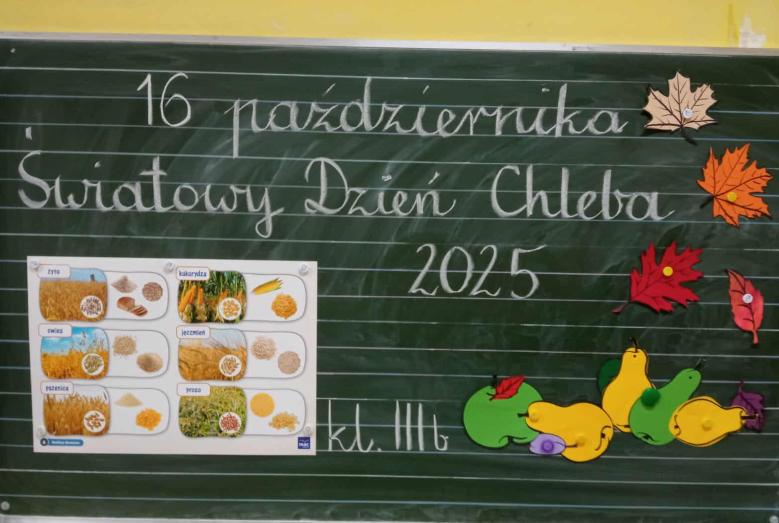 16 października
Światowy Dzień Chleba
2025
żyto
kukurydza
owies
jęczmień
pszenica
proso
kl. IIIb